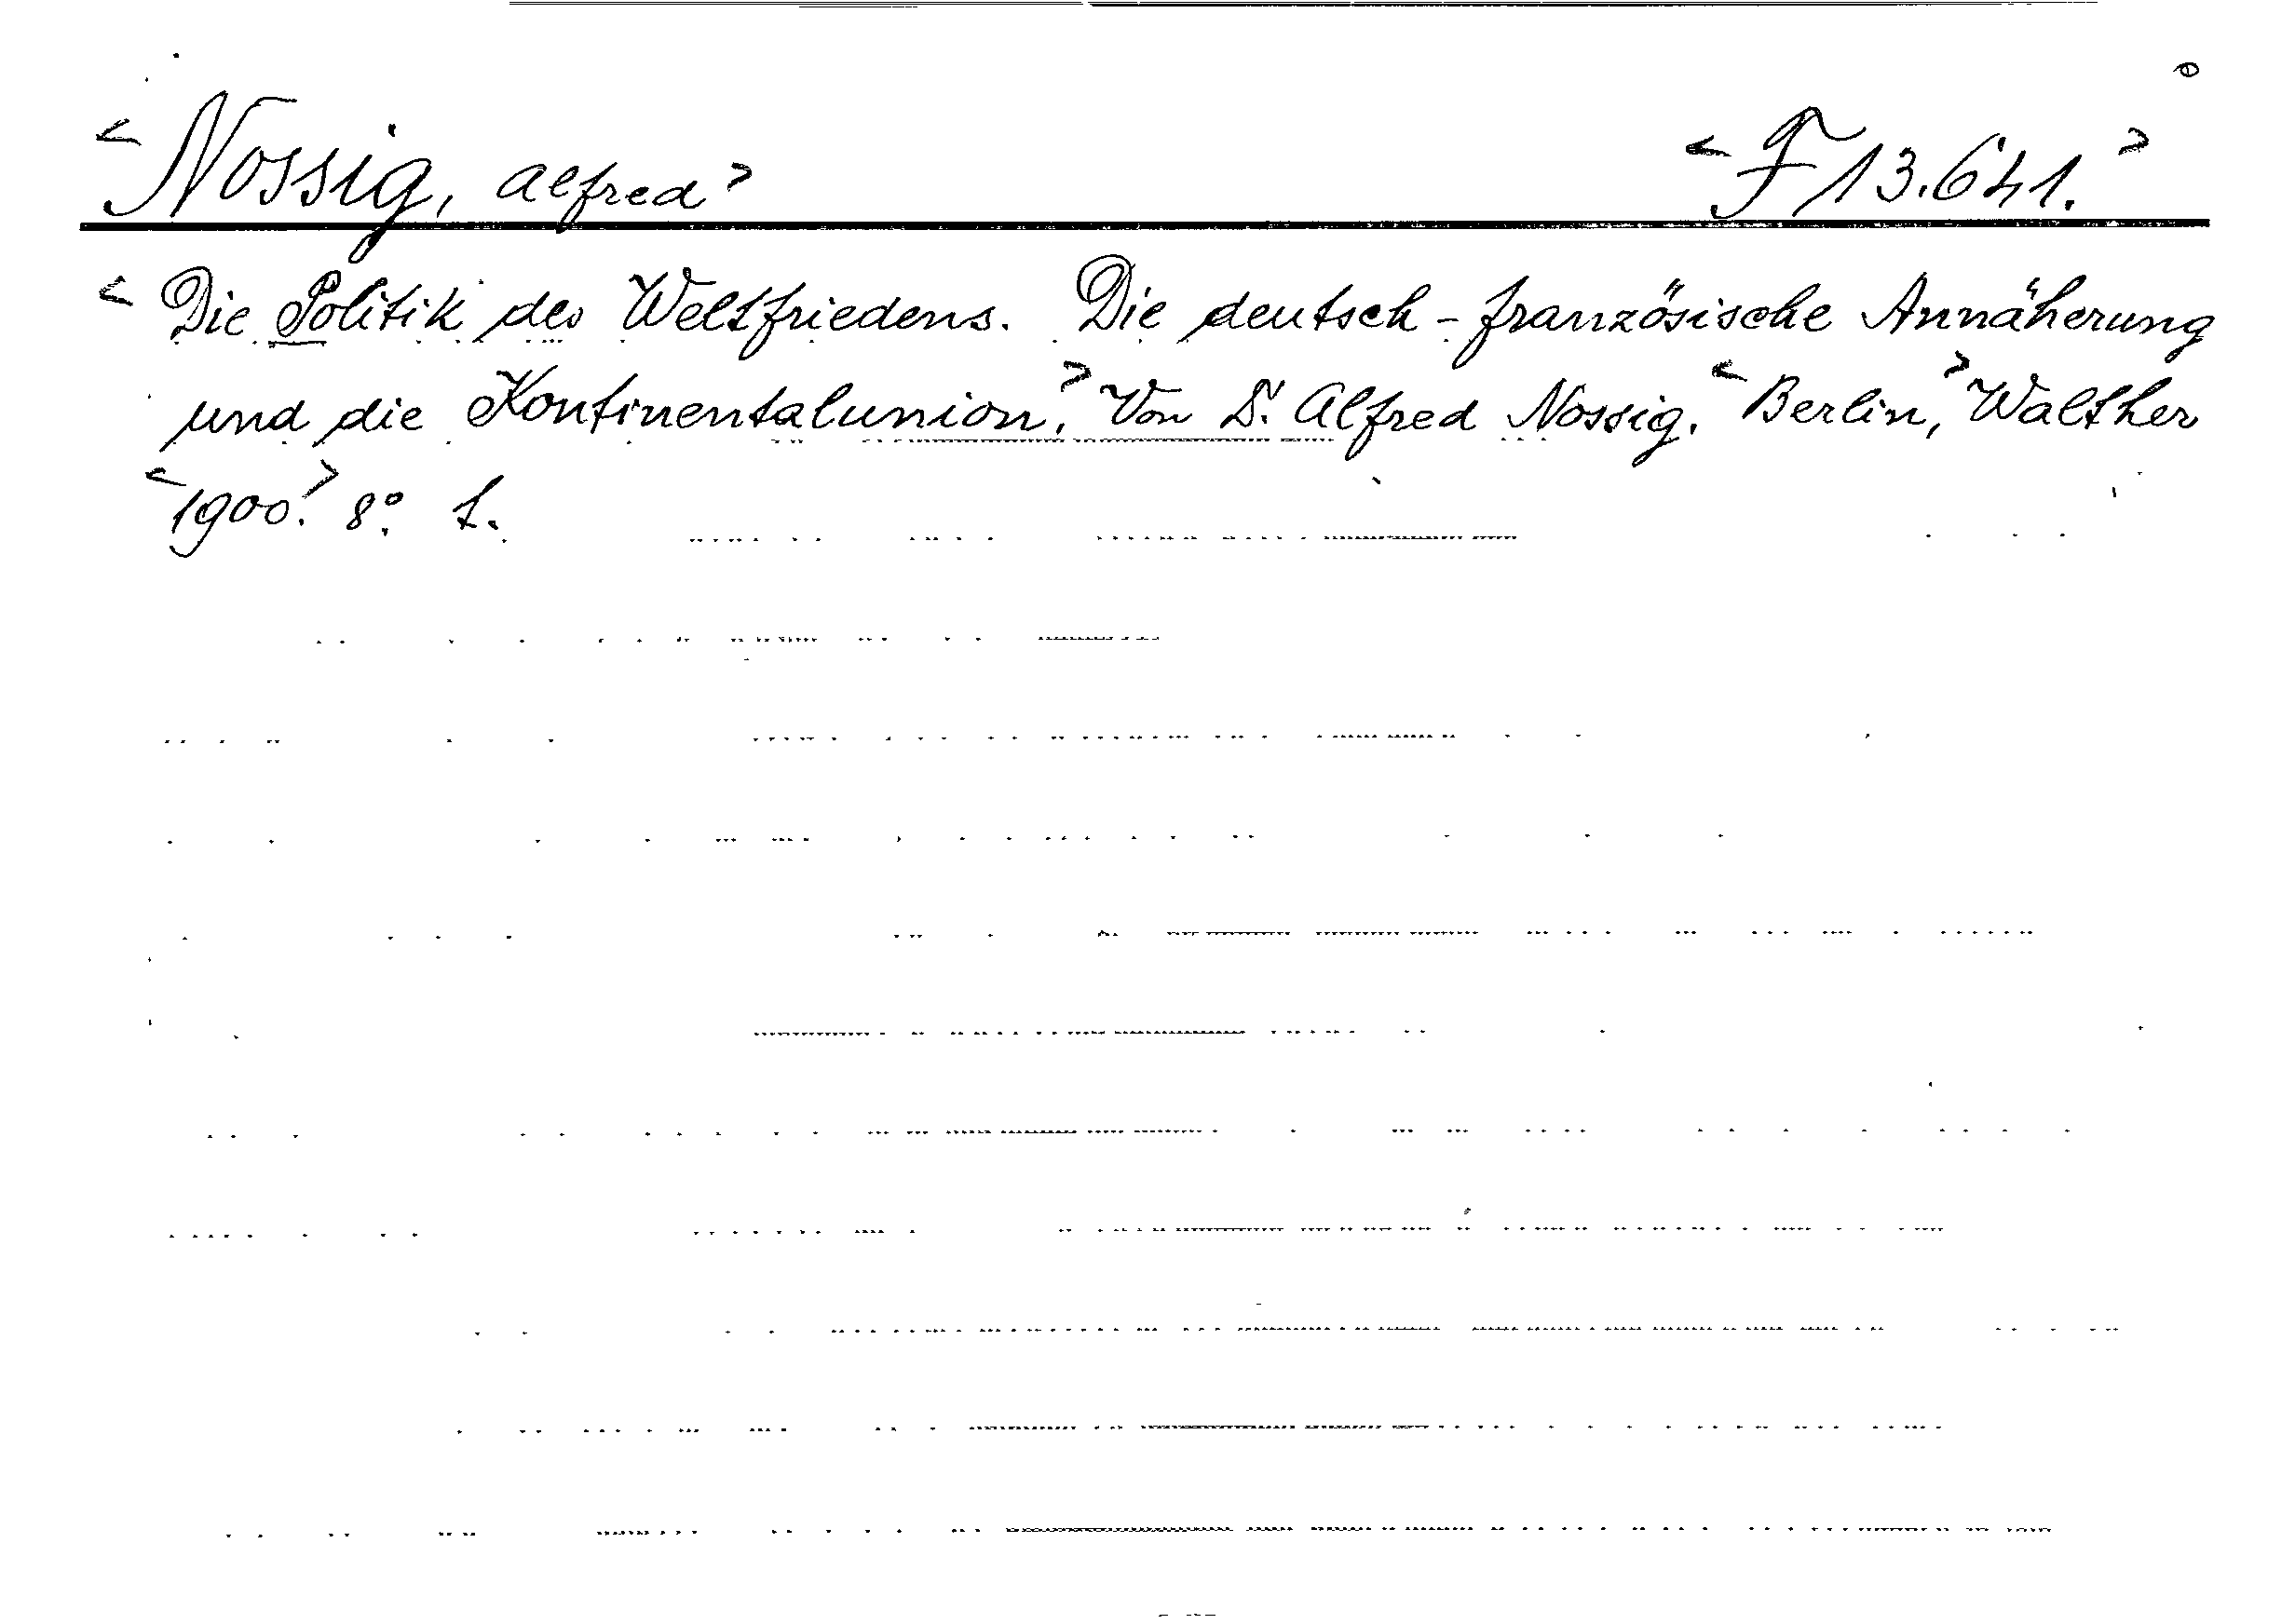 <Nossig, Alfred> <F 13.641.>
<Die Politik des Weltfriedens. Die deutsch-französische Annäherung
und die Kontinentalunion.> Von Dr. Alfred Nossig. <Berlin,> Walther
<1900.> 8°.